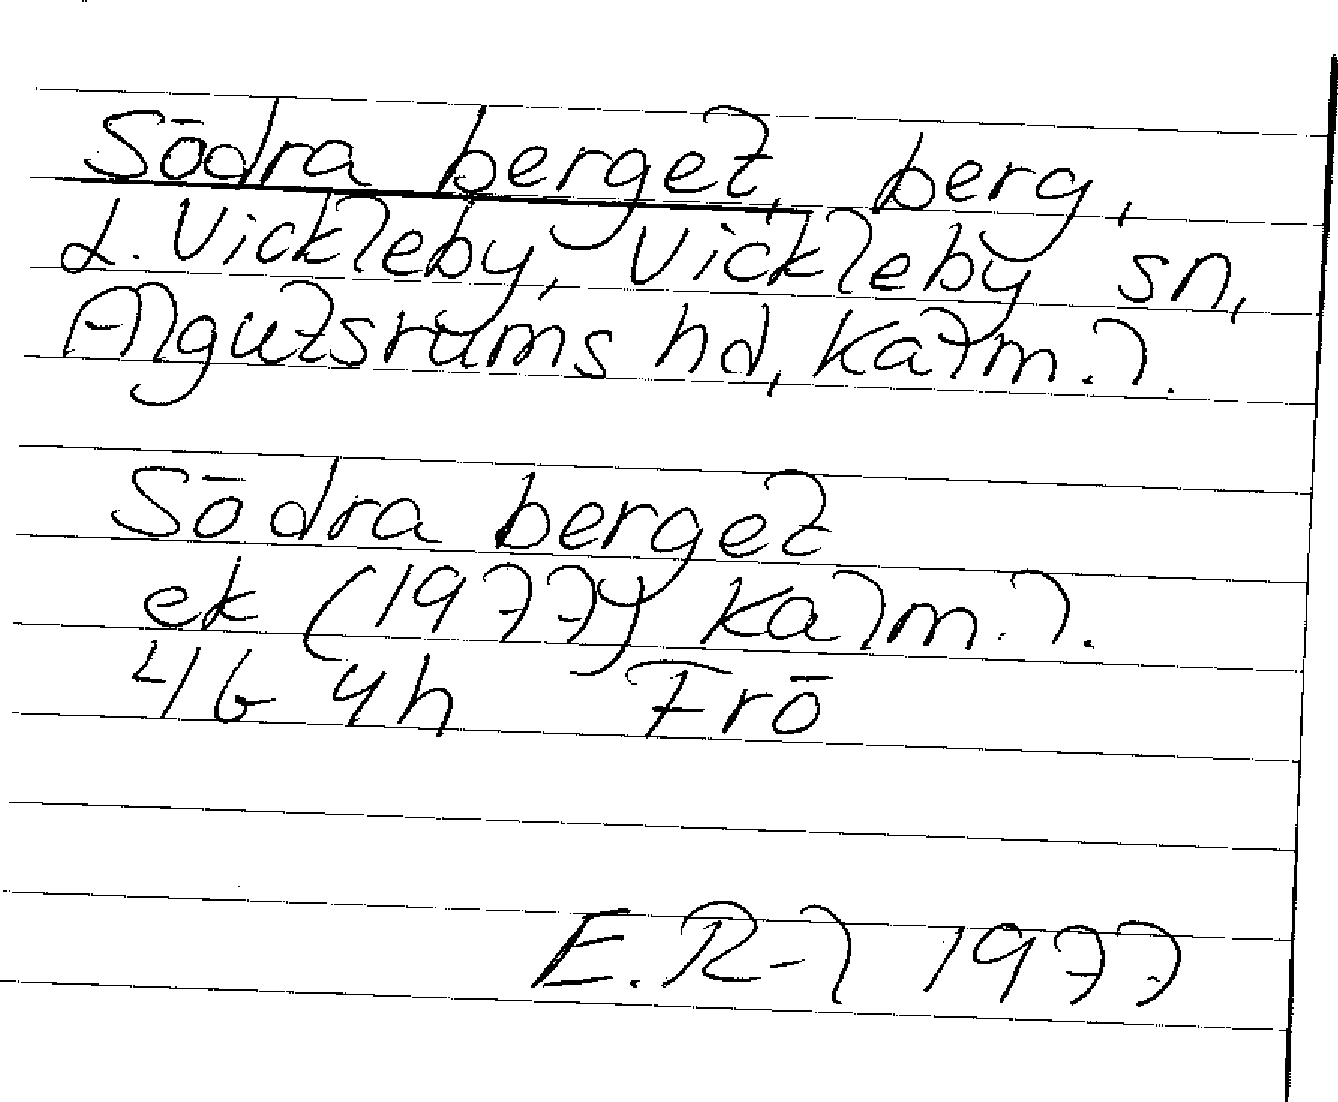 Södra berget, berg,
L. Vickleby, Vickleby sn,
Algutsrums hd, Kalm.l.
Södra berget
ek (1977) Kalm.l.
4G 4h Frö
E.R-l 1977